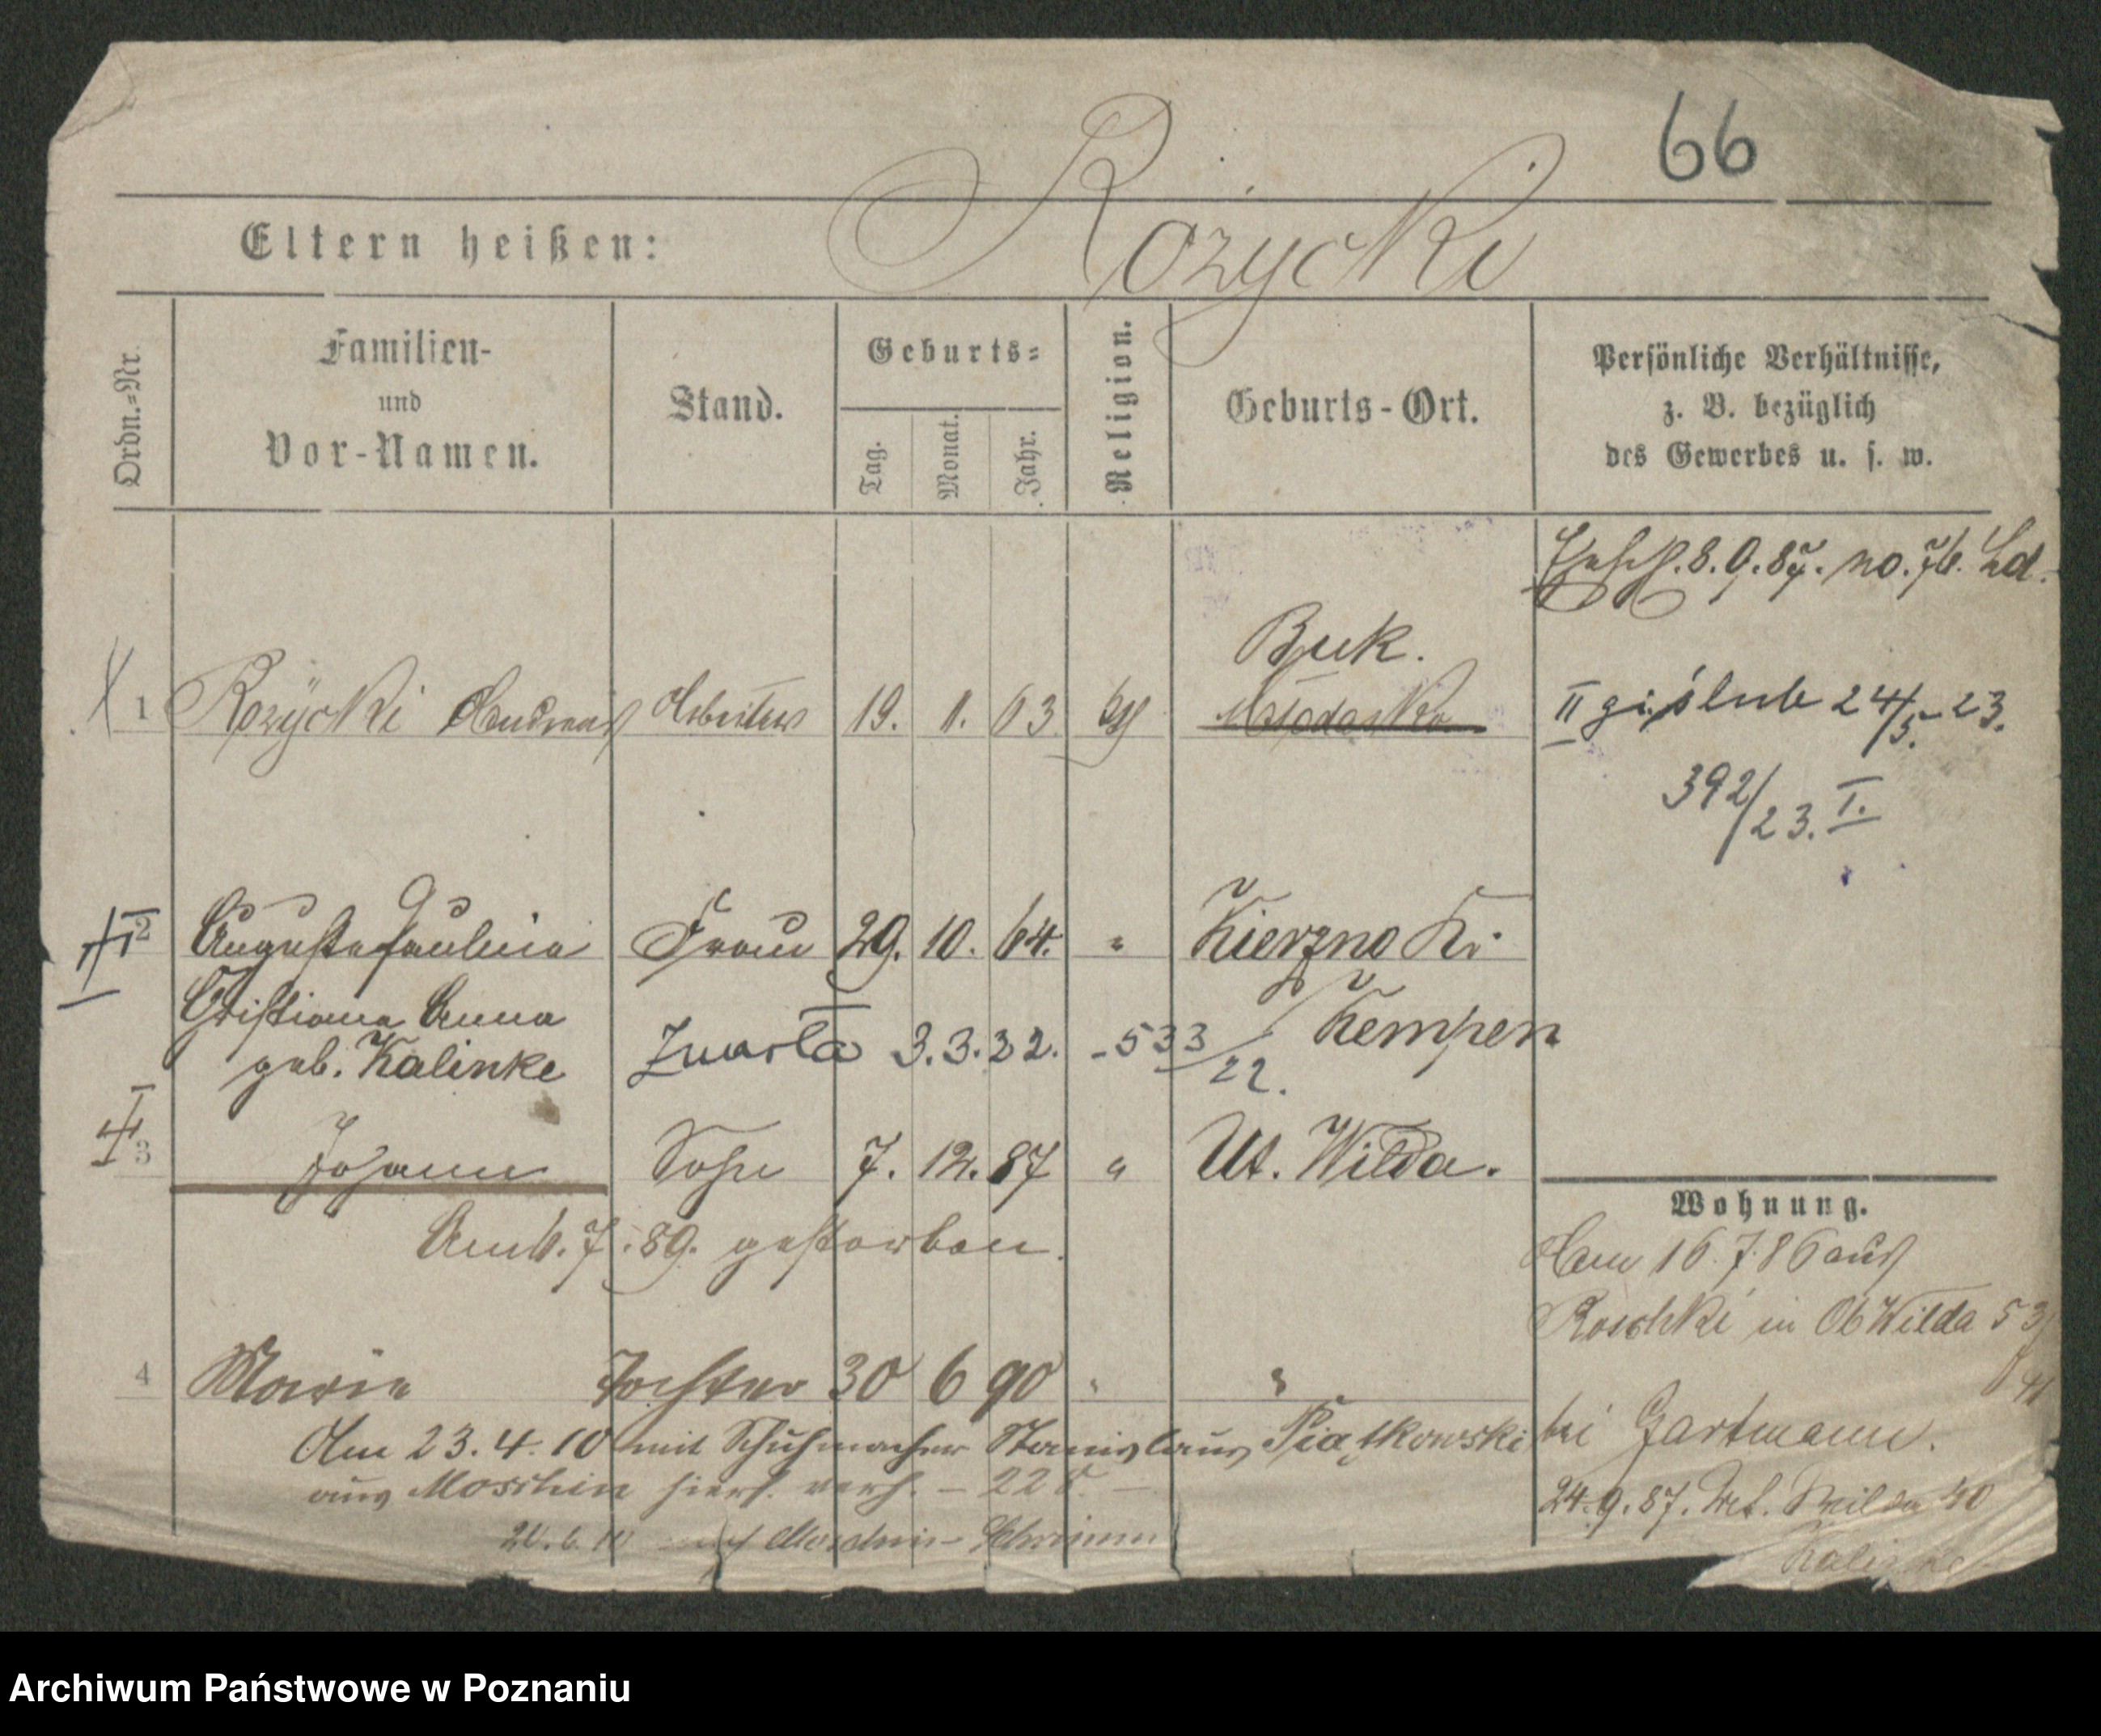 66
Eltern heißen: Rożycki
Ordn.=Nr.
Familien-
und
Vor-Namen.
Stand.
Geburts=
Tag.
Monat.
Jahr.
Religion.
Geburts-Ort.
Persönliche Verhältnisse,
z. B. bezüglich
des Gewerbes u. s. w.
Ehesch. 8.9.87. no. 76. Ld.
Buk.
1 Rozycki Andreas Arbeiter 19. 11. 63 kth
II gi ślub 24/5. 23.
392/23. I.
2 Auguste Paulina Frau 29. 10. 64. " Kierzno Kr.
Cristiana Anna Kempen
geb. Kalinke zmarła 3.3.22. - 533/22.
3 Johann Sohn 7. 12. 87 " Ut. Wilda.
Am 6. 7. 89. gestorben.
4 Marie Tochter 30 6 90 " "
Am 23. 4. 10 mit Schuhmacher Stanislaus Piątkowski
aus Moschin hiers. verh. –
Moschin - Schrimm
Wohnung.
Am 16. 7. 86 aus
in Ob Wilda 53
bei Gartmann.
24. 9. 87. Wilda 40
Kalinke
Archiwum Państwowe w Poznaniu